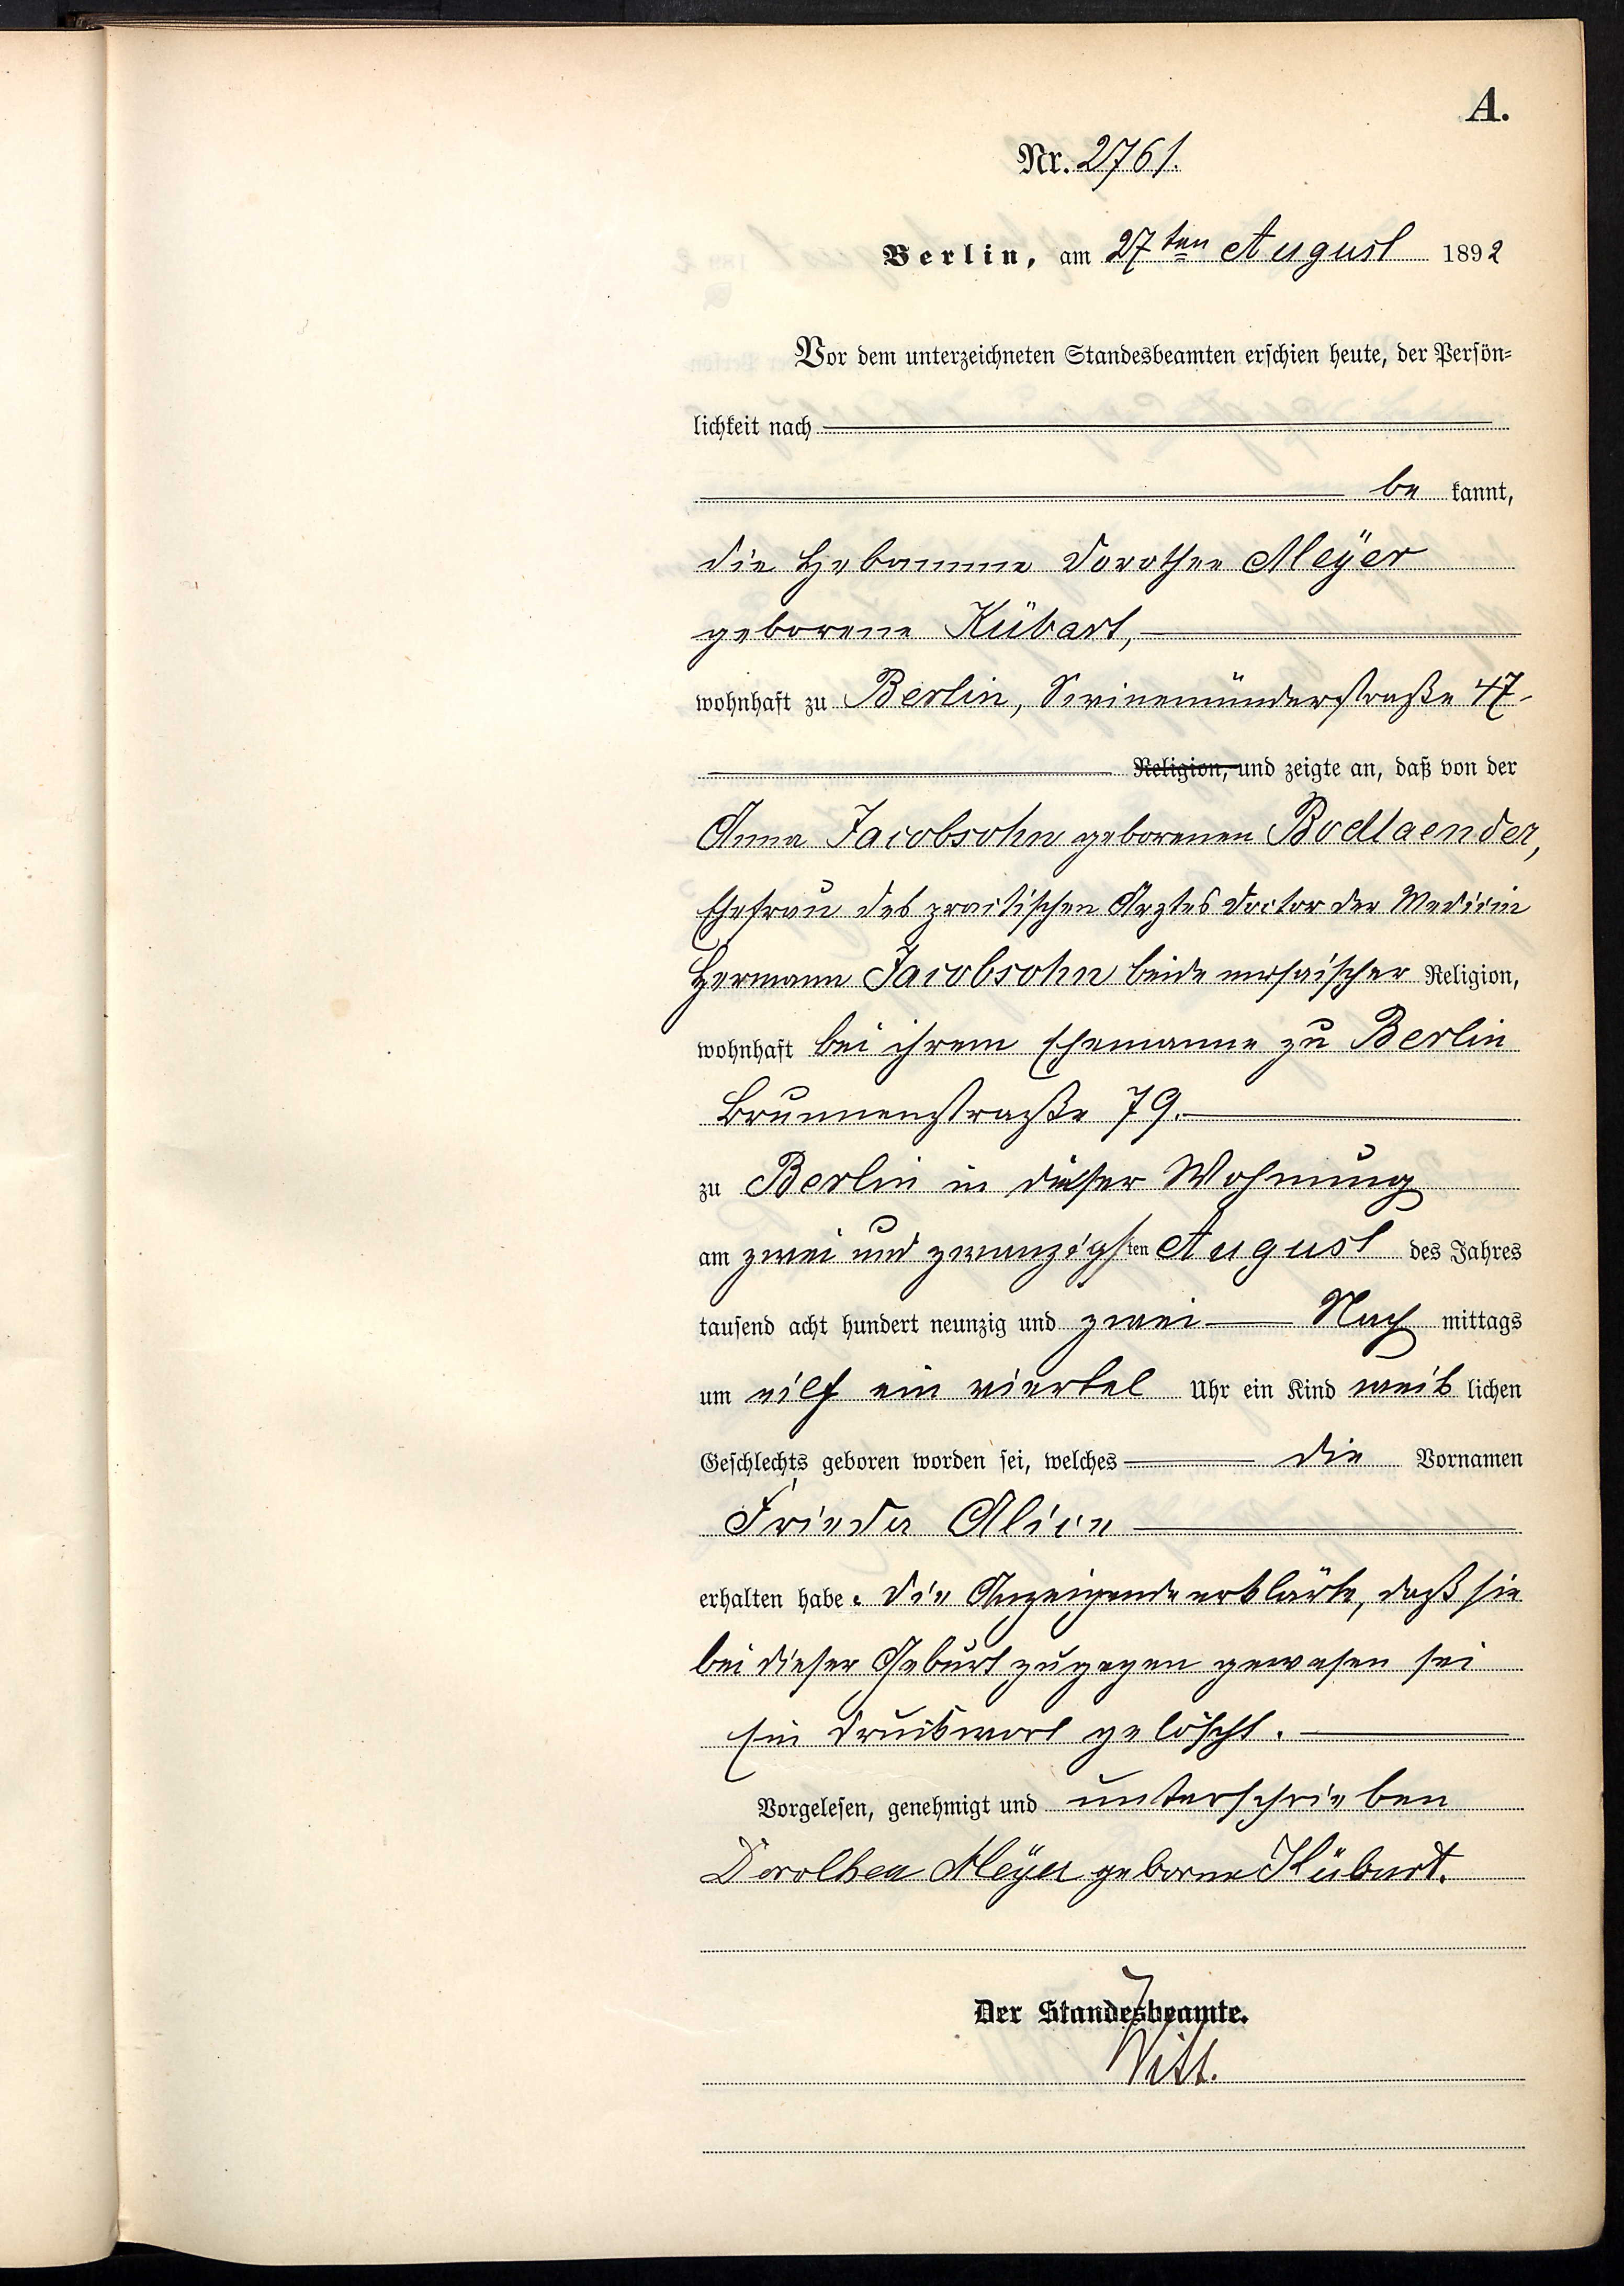 A.
Nr. 2761.
Berlin, am 27ten August 1892
Vor dem unterzeichneten Standesbeamten erschien heute, der Persön=
lichkeit nach
be kannt,
die Hebamme Dorothee Meÿer
geborene Kübart,
wohnhaft zu Berlin, Swinemünderstraße 47
Religion, und zeigte an, daß von der
Anna Jacobsohn geborenen Bodlaender,
Ehefrau des practischen Arztes Doctor der Medicin
Hermann Jacobsohn beide mosaischer Religion,
wohnhaft bei ihrem Ehemanne zu Berlin
Brunnenstraße 79.
zu Berlin in dieser Wohnung
am zwei und zwanzigsten August des Jahres
tausend acht hundert neunzig und zwei Nach mittags
um eilf ein viertel Uhr ein Kind weib lichen
Geschlechts geboren worden sei, welches die Vornamen
Frieda Alice
erhalten habe. Die Anzeigende erklärte, daß sie
bei dieser Geburt zugegen gewesen sei
Ein Druckwort gelöscht.
Vorgelesen, genehmigt und unterschrieben
Dorothea Meÿer geborne Kübart.
Der Standesbeamte.
Witt.